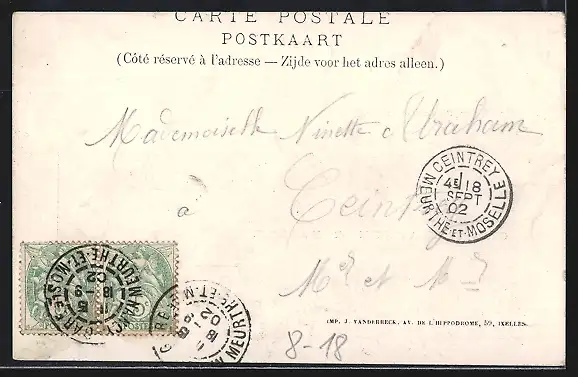 CARTE POSTALE
POSTKAART
(Côté réservé à l'adresse — Zijde voor het adres alleen.)
Mademoiselle Ninette Abraham
CEINTREY
4E 18
SEPT
02
MEURTHE-ET-MOSELLE
à Ceintrey
Mthe et Mlle
IMP. J. VANDERBECK, AV. DE L'HIPPODROME, 59, IXELLES.
8-18